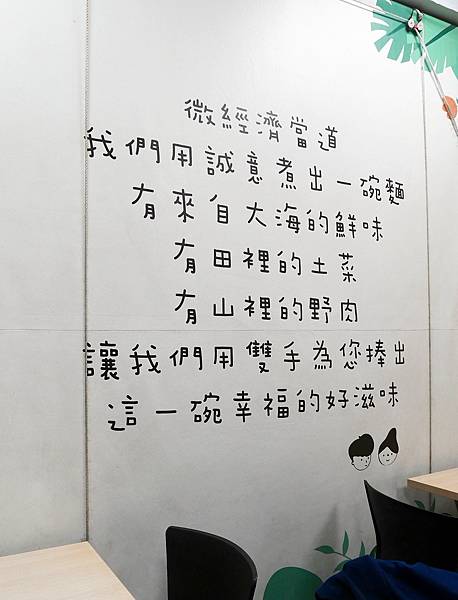 微經濟當道
我們用誠意煮出一碗麵
有來自大海的鮮味
有田裡的土菜
有山裡的野肉
讓我們用雙手為您捧出
這一碗幸福的好滋味